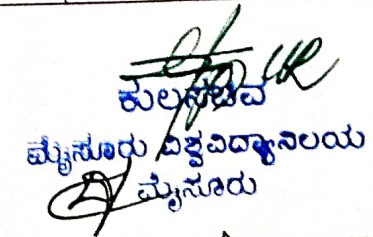 ಕುಲಸಚಿವ
ಮೈಸೂರು ವಿಶ್ವವಿದ್ಯಾನಿಲಯ
ಮೈಸೂರು